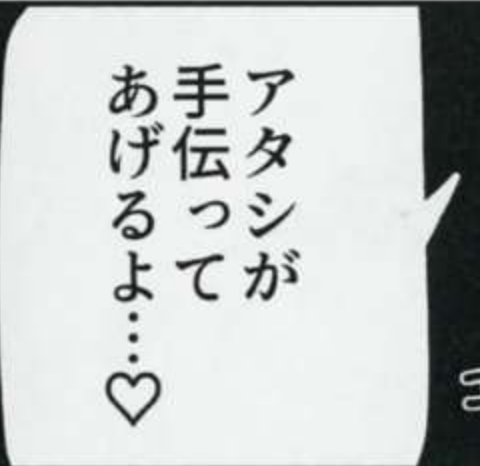 アタシが
手伝って
あげるよ…♡